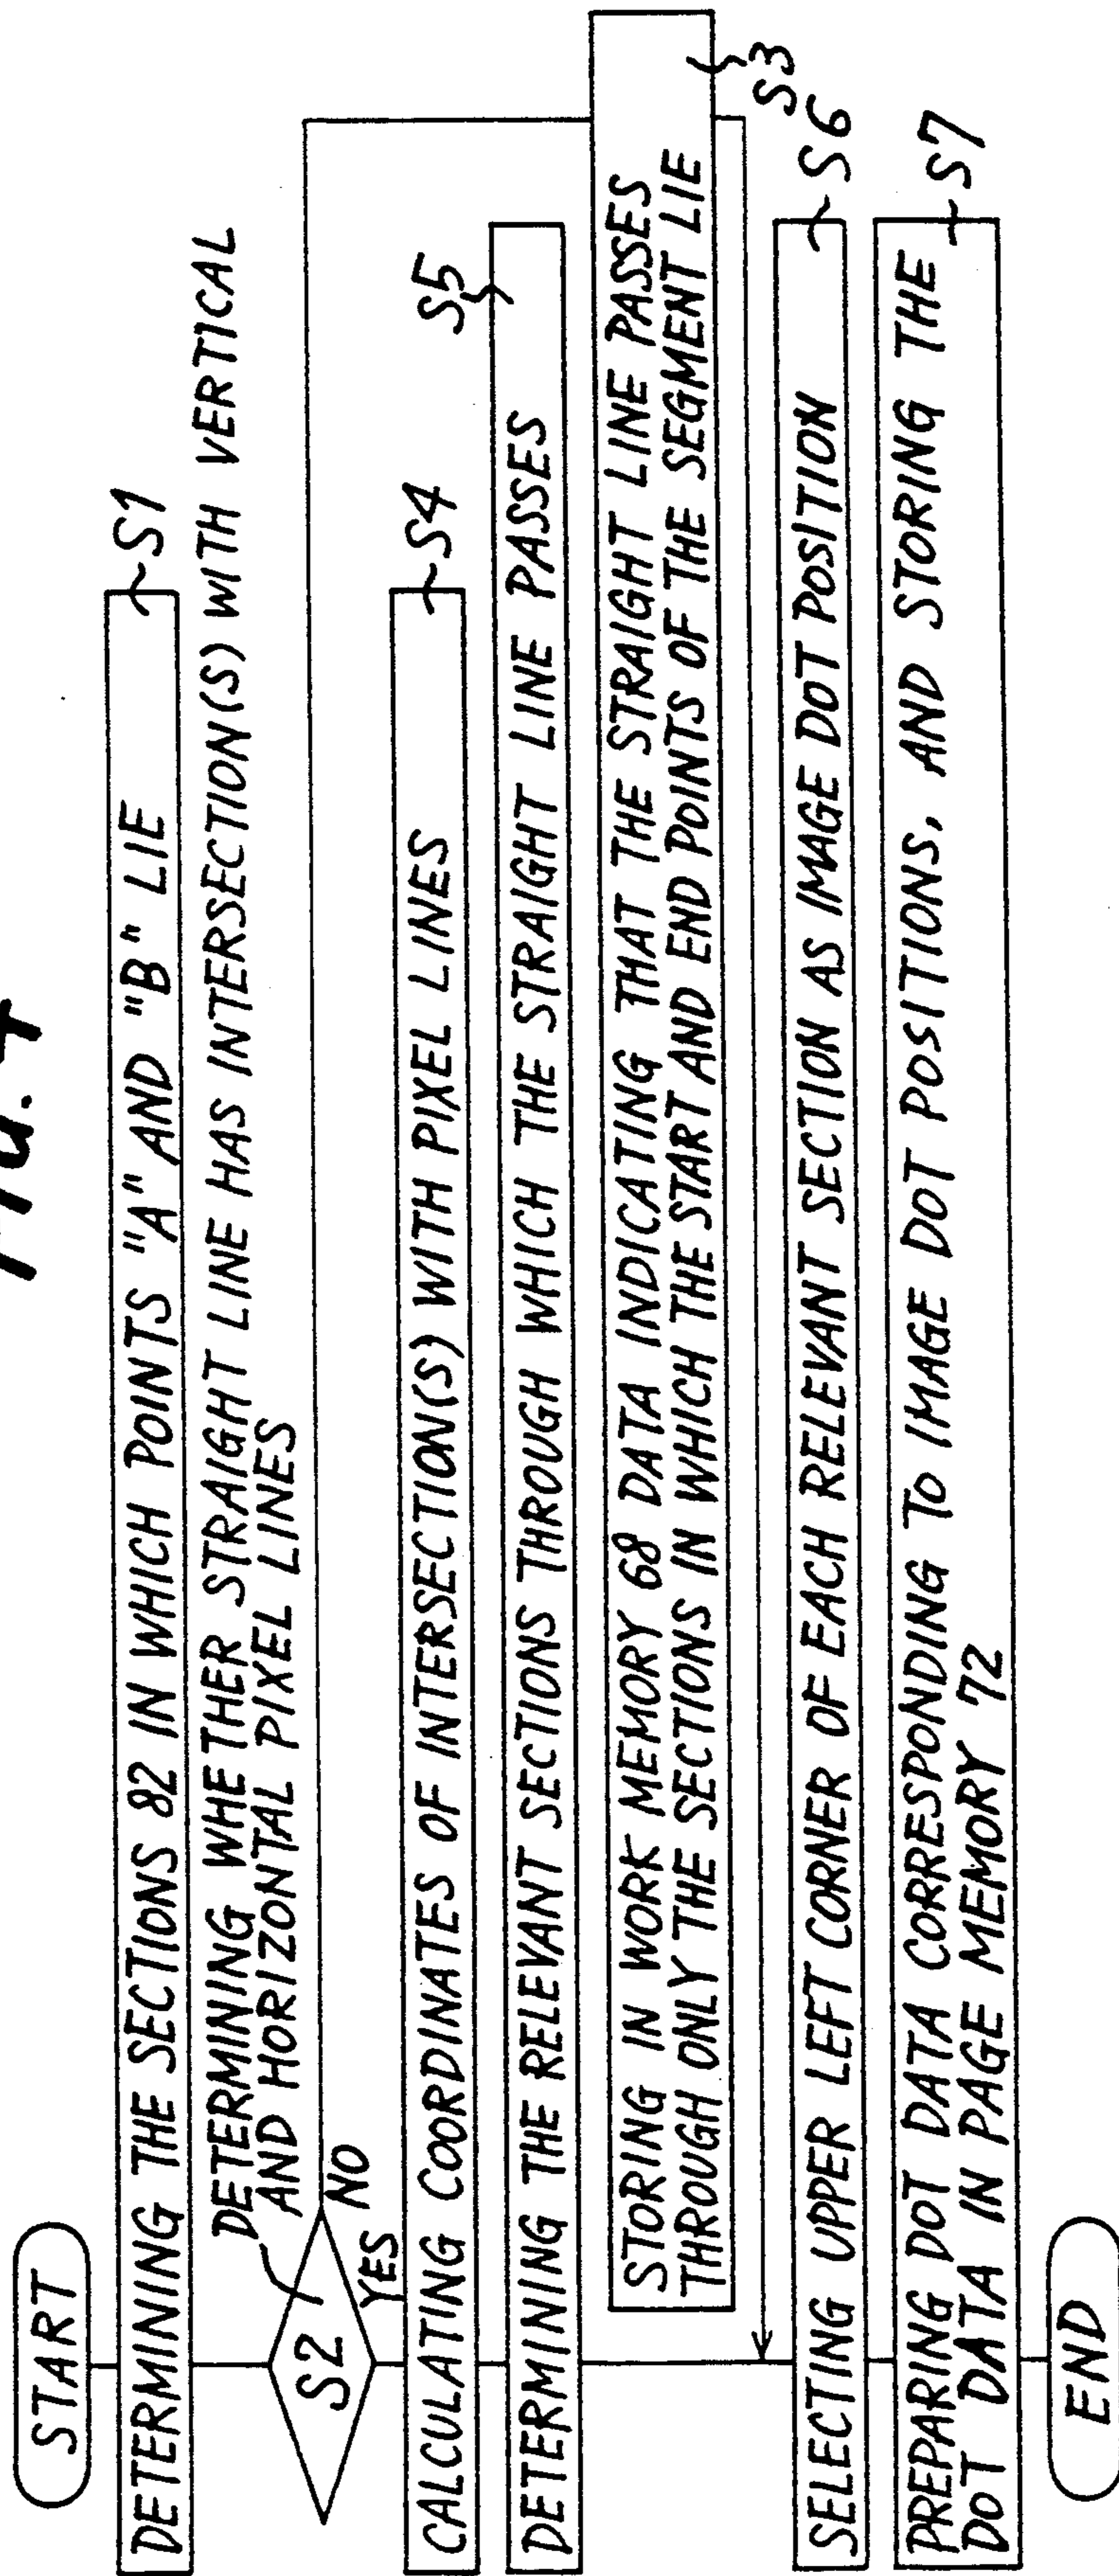 START
DETERMINING THE SECTIONS 82 IN WHICH POINTS "A" AND "B" LIE
S1
DETERMINING WHETHER STRAIGHT LINE HAS INTERSECTION(S) WITH VERTICAL
AND HORIZONTAL PIXEL LINES
S2
NO
YES
CALCULATING COORDINATES OF INTERSECTION(S) WITH PIXEL LINES
S4
DETERMINING THE RELEVANT SECTIONS THROUGH WHICH THE STRAIGHT LINE PASSES
S5
STORING IN WORK MEMORY 68 DATA INDICATING THAT THE STRAIGHT LINE PASSES
THROUGH ONLY THE SECTIONS IN WHICH THE START AND END POINTS OF THE SEGMENT LIE
S3
SELECTING UPPER LEFT CORNER OF EACH RELEVANT SECTION AS IMAGE DOT POSITION
S6
PREPARING DOT DATA CORRESPONDING TO IMAGE DOT POSITIONS, AND STORING THE
DOT DATA IN PAGE MEMORY 72
S7
END